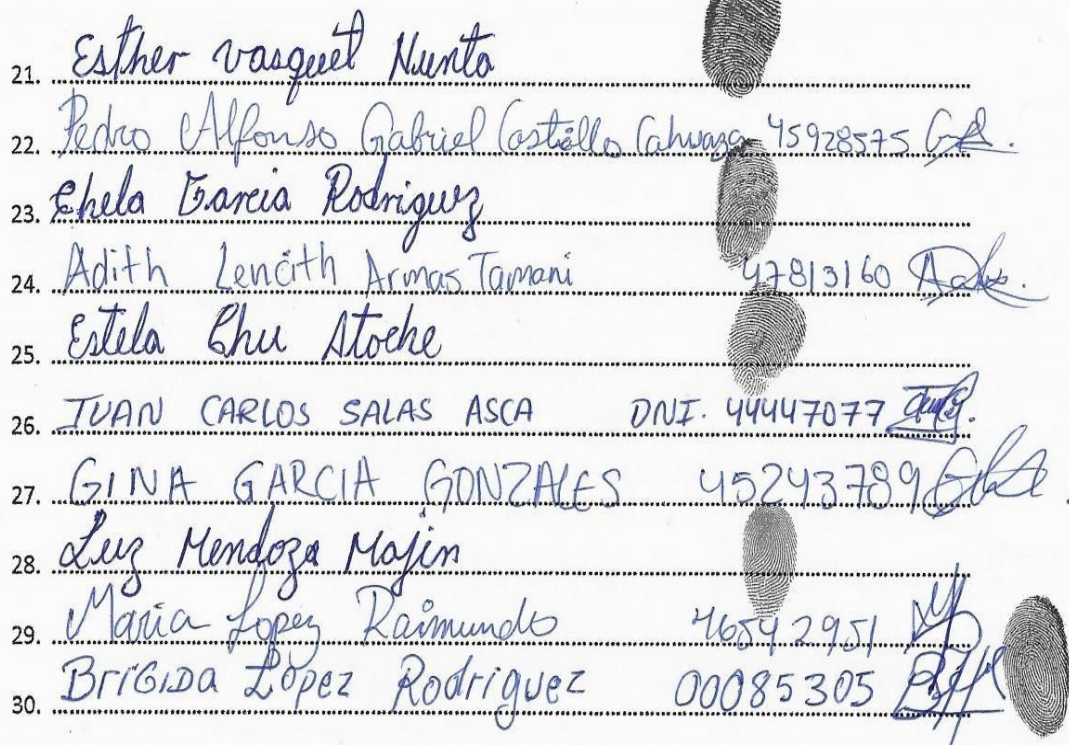 21. Esther vasquet Nunta
22. Pedro Alfonso Gabriel Castillo Cahuaza 45928575
23. Chela Garcia Rodriguez
24. Adith Lencith Armas Tamani 47813160
25. Estela Chu Atoche
26. JUAN CARLOS SALAS ASCA DNI. 44447077
27. GINA GARCIA GONZALES 45243789
28. Luz Mendoza Majin
29. Maria Lopez Raimundo 46542951
30. BriGiDa Lopez Rodriguez 00085305